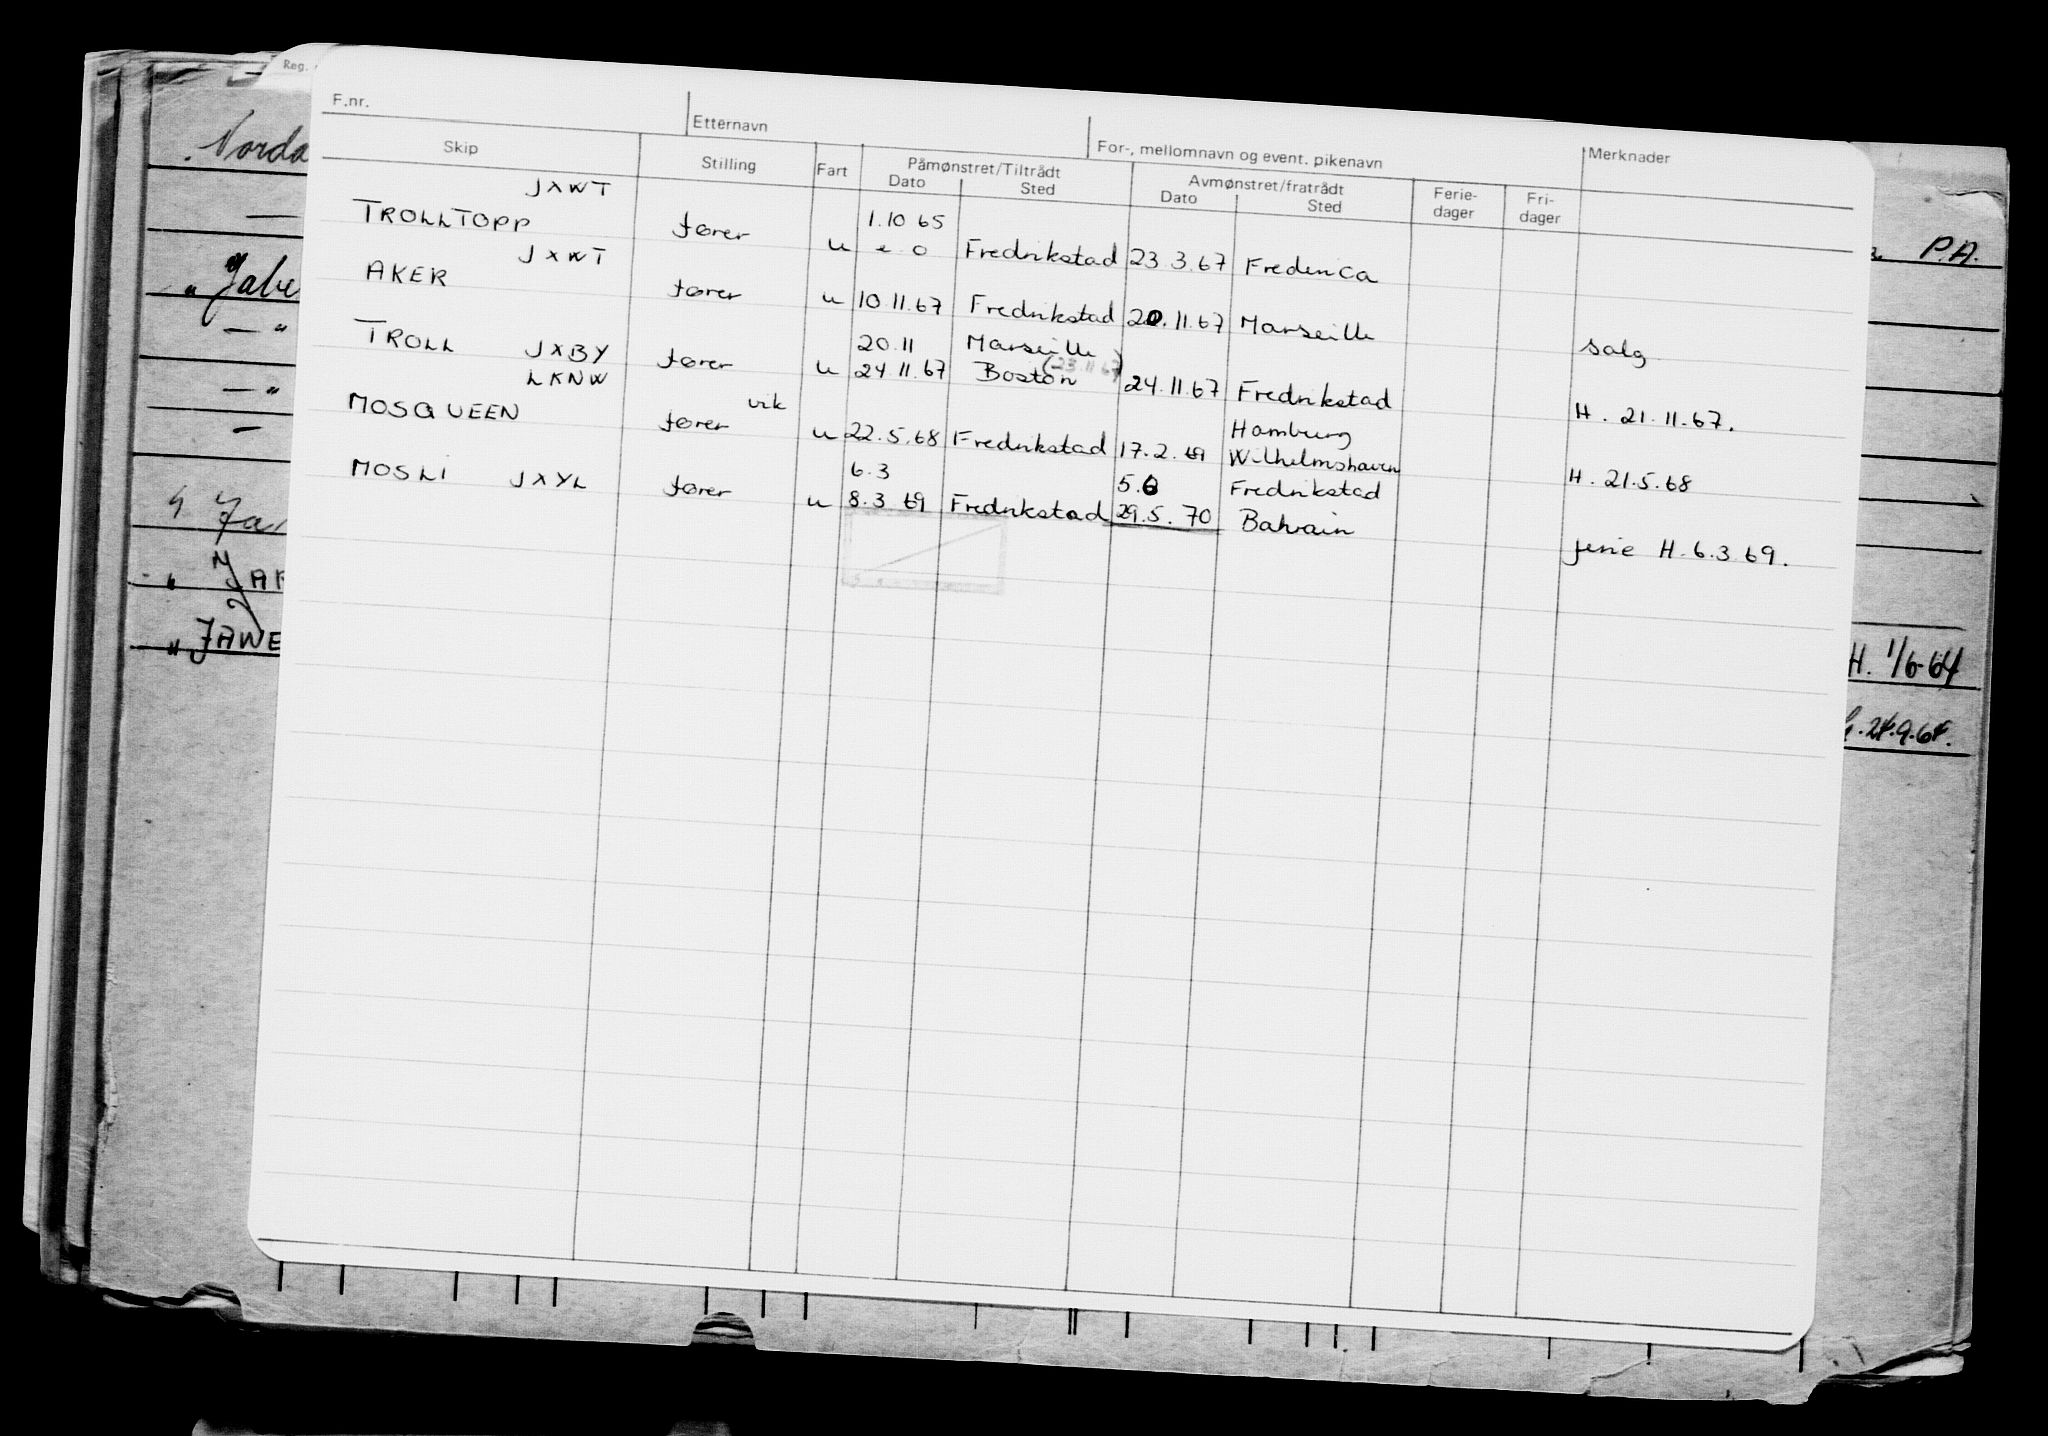 Reg.
F.nr.
Etternavn
For-, mellomnavn og event. pikenavn
Merknader
Skip
Stilling
Fart
Påmønstret/Tiltrådt
Dato
Sted
Avmønstret/fratrådt
Dato
Sted
Ferie-
dager
Fri-
dager
JXWT
TROLLTOPP fører u 1.10 65
e o Fredrikstad 23 3.67 Fredericia
JXWT
AKER fører u 10.11.67 Fredrikstad 20.11.67 Marseille salg
TROLL JXBY fører u 20.11 Marseille
24 11.67 Boston (-23.11 67) 24.11.67 Fredrikstad H. 21.11.67.
LKNW
MOSQUEEN vik
fører u 22.5.68 Fredrikstad 17.2.69 Hamburg
Wilhelmshaven H. 21.5.68
MOSLI JXYL fører u 6.3
8.3 69 Fredrikstad 5.6 Fredrikstad
29.5.70 Bahrain ferie H. 6.3 69.
Norda
" Jabe
— "
— "
—
" JAR
" JAWE
P.A.
H. 1/6-64
24.9.64.